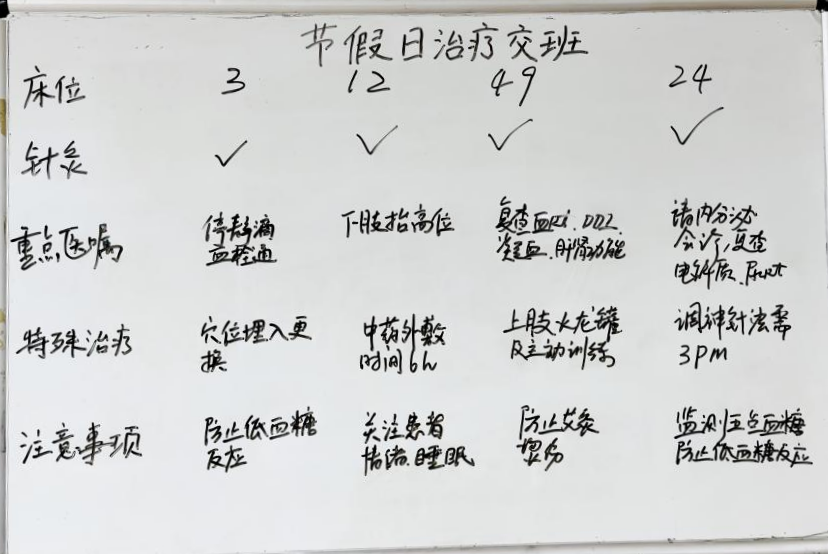 节假日治疗交班
床位 3 12 49 24
针灸 ✓ ✓ ✓ ✓
重点医嘱 停静滴 下肢抬高位 复查血Rt、DD2、 请内分泌
血栓通 凝血、肝肾功能 会诊、复查
电解质、尿Rt
特殊治疗 穴位埋入更 中药外敷 上肢火龙罐 调神针法需
换 时间6h 及主动训练 3pm
注意事项 防止低血糖 关注患者 防止艾灸 监测五点血糖
反应 情绪、睡眠 烫伤 防止低血糖反应